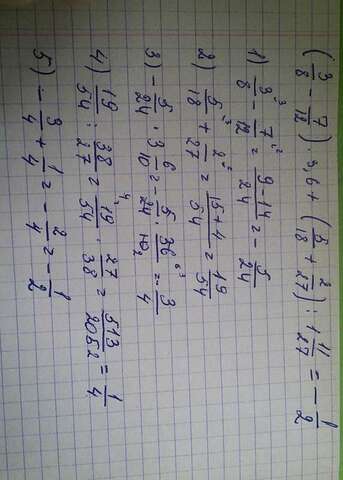 (3/8 - 7/12) · 3,6 + (5/18 + 2/27) : 1 11/27 = - 1/2
1) 3/8 - 7/12 = 9-14/24 = - 5/24
2) 5/18 + 2/27 = 15+4/54 = 19/54
3) - 5/24 · 3 6/10 = - 5/24 · 36/10 = - 3/4
4) 19/54 : 38/27 = 19/54 · 27/38 = 513/2052 = 1/4
5) - 3/4 + 1/4 = - 2/4 = - 1/2